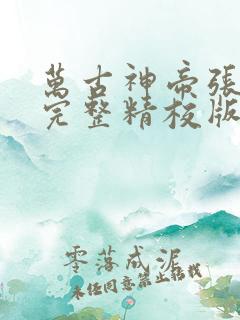 萬古神帝張
完整精校版
零落成泥
未经同意禁止转载